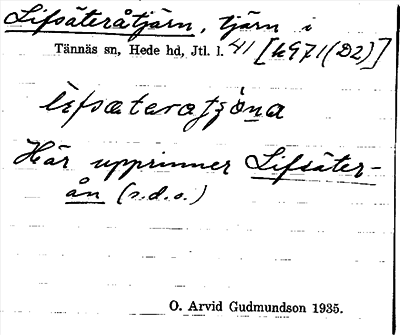 Lifsäteråtjärn, tjärn i
Tännäs sn, Hede hd, Jtl. l. 41 [k971(D2)]
Här upprinner Lifsäter-
ån (s.d.o.)
O. Arvid Gudmundson 1935.